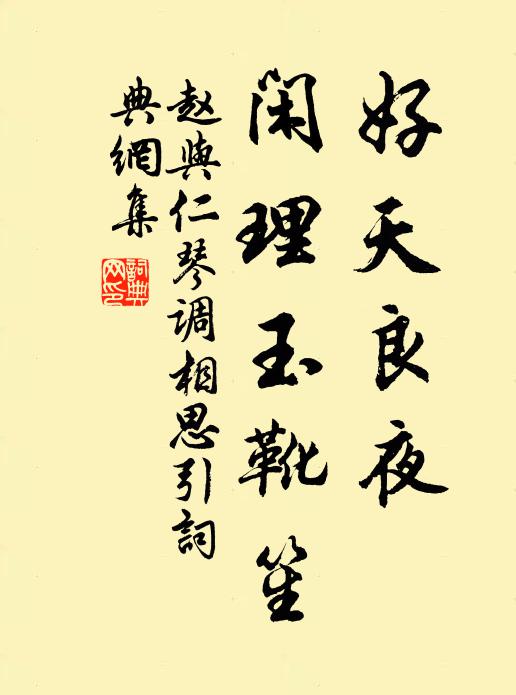 好天良夜
闲理玉靴笙
赵与仁琴调相思引词
典網集
詞典网印